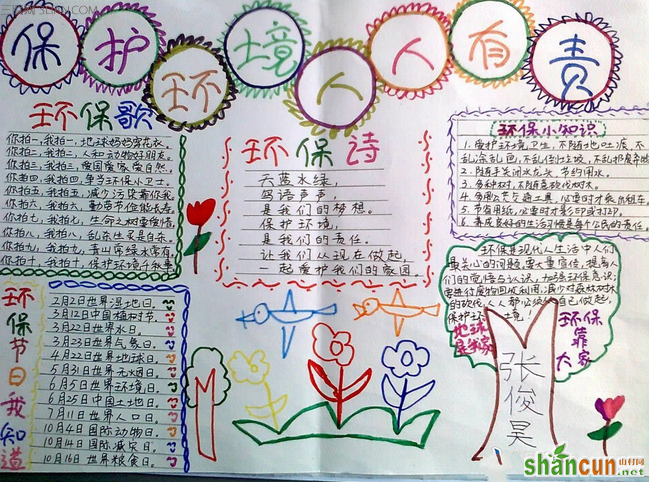 保护环境人人有责
环保歌
你拍一,我拍一,地球妈妈穿花衣。
你拍二,我拍二
你拍三,我拍三,爱国爱家爱自然。
你拍四,我拍四,争当环保小卫士。
你拍五,我拍五,减少污染靠你我。
你拍六,我拍六
你拍七,我拍七,生命之树要爱惜。
你拍八,我拍八
你拍九,我拍九,青山常绿水常有。
你拍十,我拍十,保护环境
环保诗
天蓝水绿,
鸟语声声,
是我们的梦想。
保护环境,
是我们的责任。
让我们从现在做起,
起爱护我们的家园。
环保小知识
1.爱护环境卫生,不随地吐痰,不
乱涂乱画,不乱倒垃圾
2.随手关闭水龙头,节约用水。
3.多种树,不随意砍伐树木。
4.
5.节省用纸
6.养成良好的生活习惯是每个公民的责任。
环保节日我知道
2月2日世界湿地日。
3月12日中国植树节。
3月22日世界水日。
3月23日世界气象日。
4月22日世界地球日。
5月31日世界无烟日。
6月5日世界环境日。
6月25日中国土地日。
7月11日世界人口日。
10月4日国际动物日。
10月14日国际减灾日。
10月16日世界粮食日。
环保是现代人生活中人们
最关心的问题,要大量宣传,提高人
们的觉悟与认识,加强环保意识,
保护环境
地球是我家
环保靠大家
张俊昊
shancun
山村网
.net